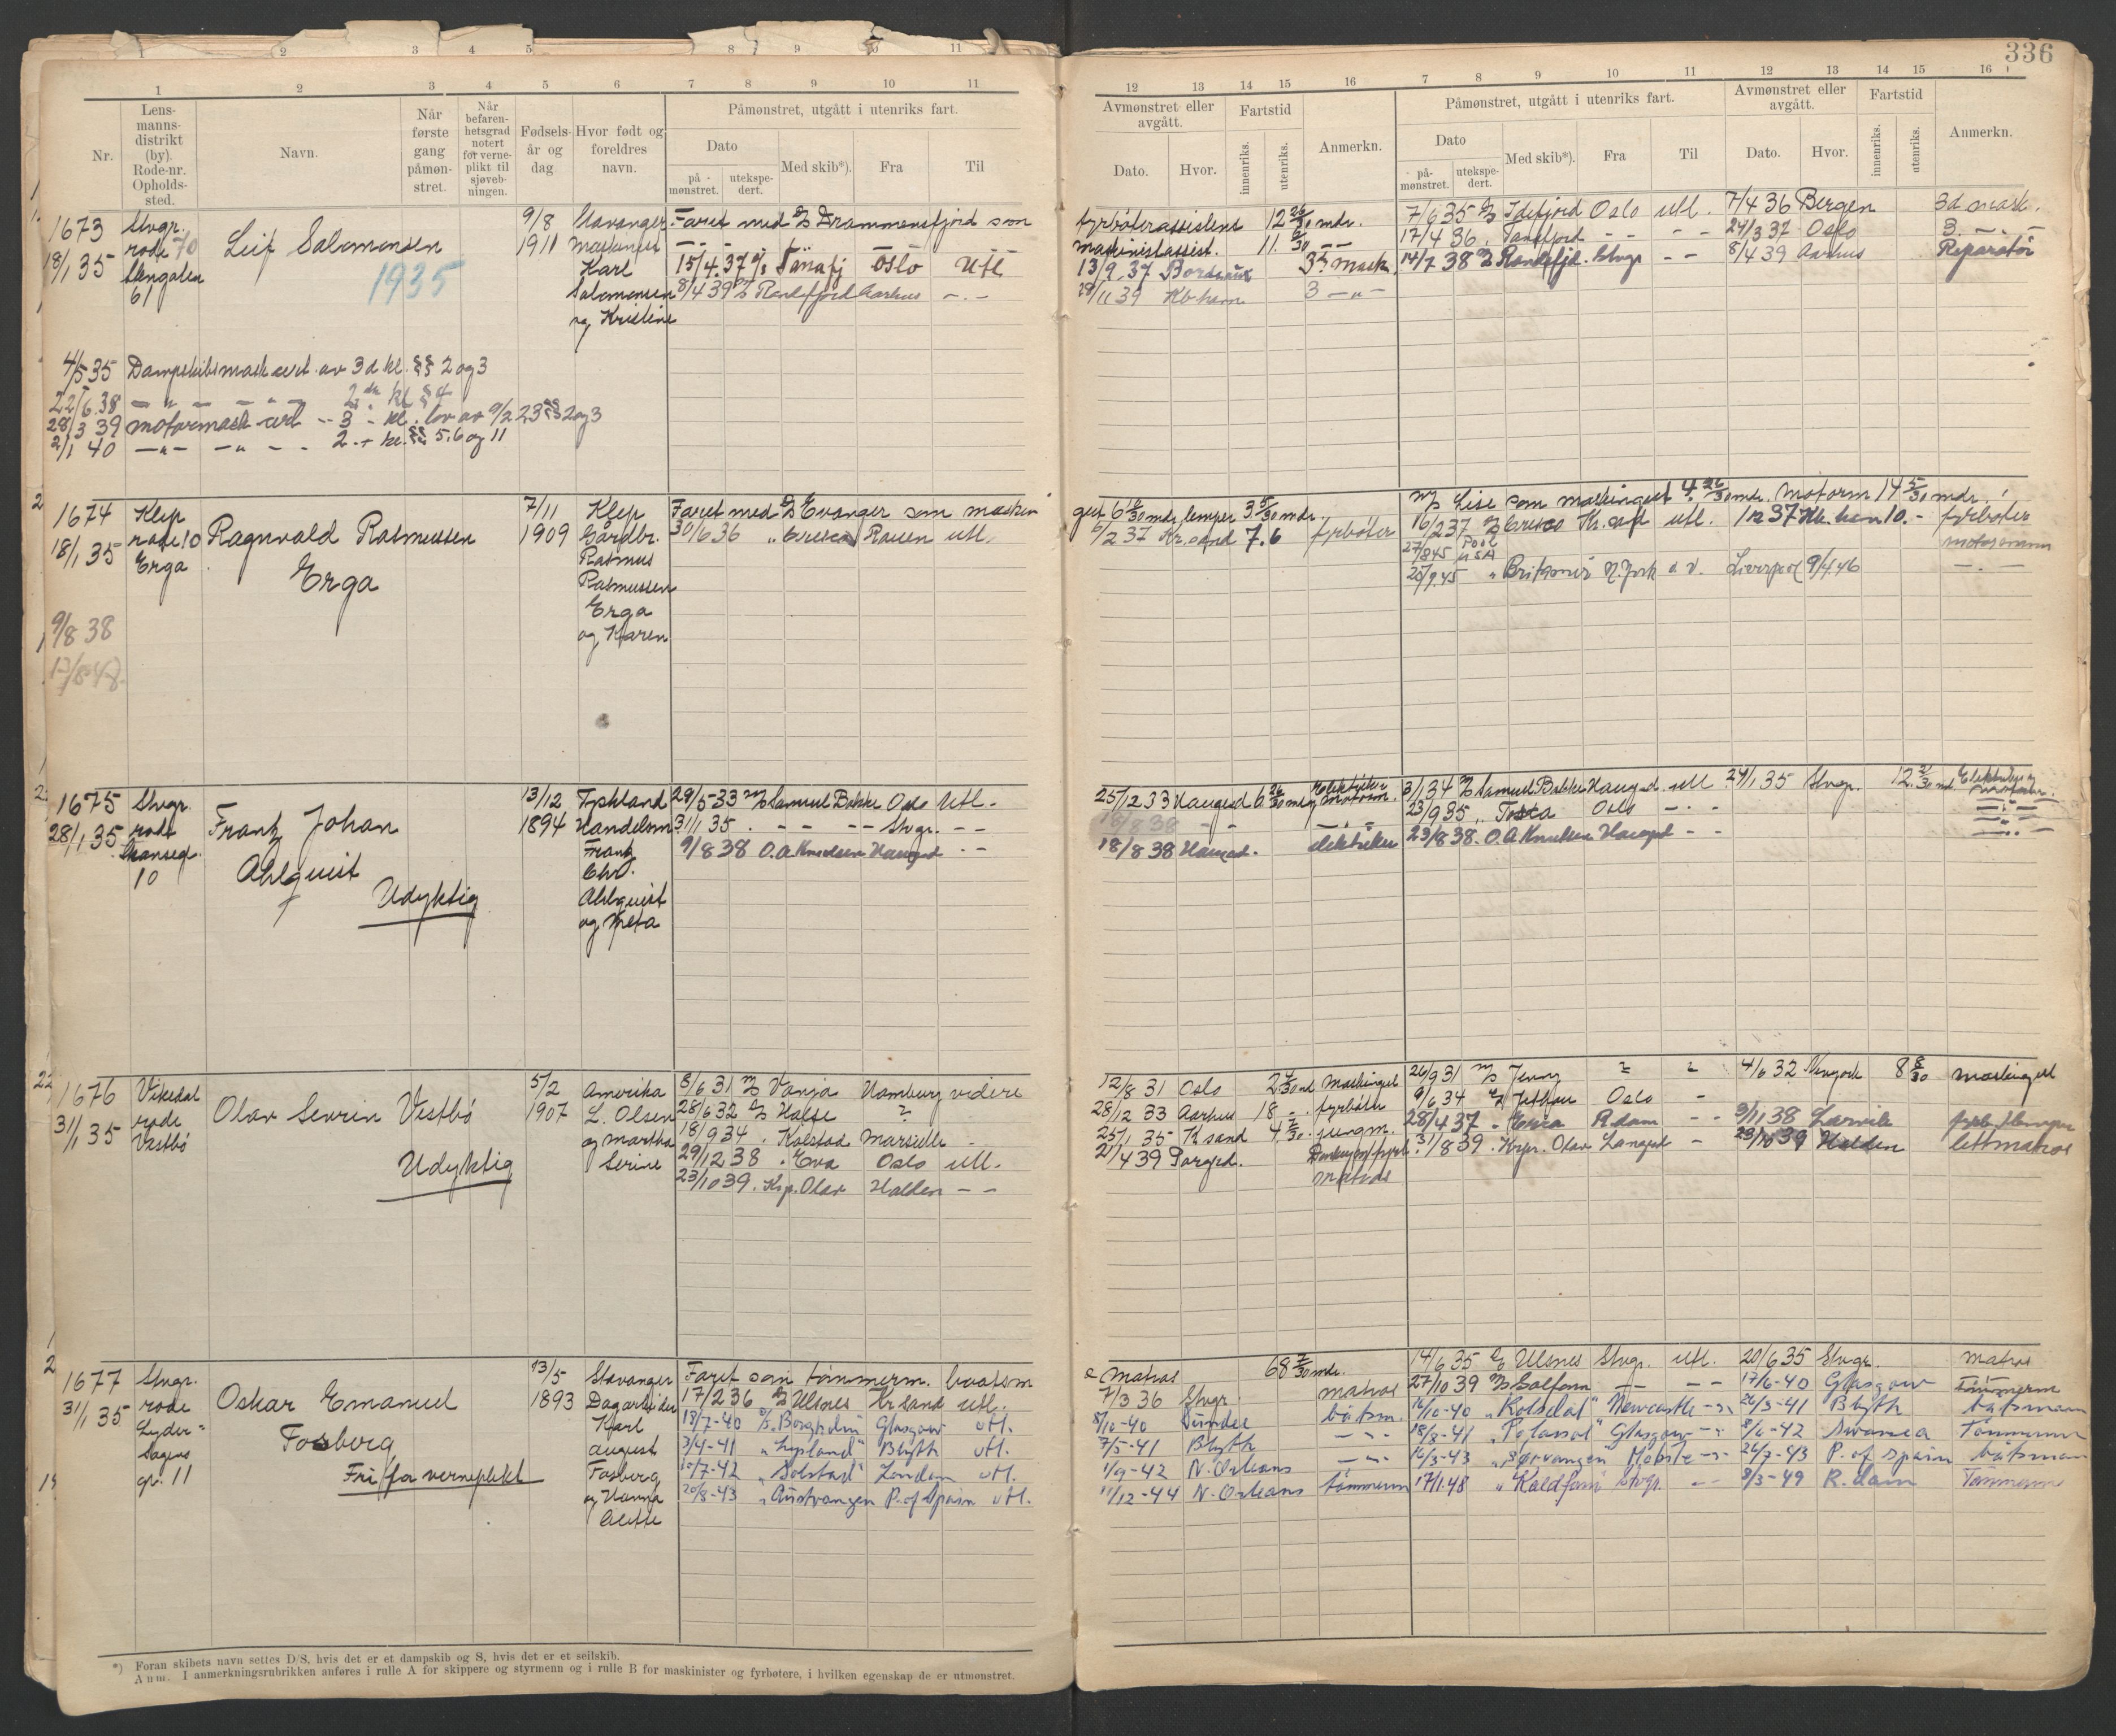 336
1 2 3 4 5 6 7 8 9 10 11
12 13 14 15 16 7 8 9 10 11 12 13 14 15 16
Nr.
Lens-
manns-
distrikt
(by).
Rode-nr.
Opholds-
sted.
Navn.
Når
første
gang
påmøn-
stret.
Når
befaren-
hetsgrad
notert
for verne-
plikt til
sjøveb-
ningen.
Fødsels-
år og
dag
Hvor født og
foreldres
navn.
Påmønstret, utgått i utenriks fart.
Dato
på-
mønstret.
utekspe-
dert.
Med skib*).
Fra
Til
Avmønstret eller
avgått.
Dato.
Hvor.
Fartstid
innenriks.
utenriks.
Anmerkn.
Påmønstret, utgått i utenriks fart.
Dato
på-
mønstret.
utekspe-
dert.
Med skib*).
Fra
Til
Avmønstret eller
avgått.
Dato.
Hvor.
Fartstid
innenriks.
utenriks.
Anmerkn.
1673
18/1 35
Stvgr.
rode 70
61
Leif Salomonsen
1935
9/8
1911
Stavanger
Karl
Salomonsen
og Kristine
Faret med D/S Drammensfjord som
15/4.37 Tanafj Oslo Utl
8/4 39 Randsfjord Aarhus - . -
fyrbøterassistent 12 26/30 mdr.
maskinistassist. 11
13/9 37 Bordeaux 3 mask.
29/11 39 Kbhavn 3 - " -
7/6 35 Idefjord Oslo utl. 7/4 36 Bergen 3d mask.
17/4 36 Tanafjord - - - - 24/3 37 Oslo 3. - . -
14/7 38 Randsfjd. Stvgr - - 8/4 39 Aarhus Reparatør
4/5 35 Dampskibsmask cert. av 3d kl. §§ 2 og 3
22/6.38 - " - - " - 2 kl § 4
28/3 39 motormask cert - - 3 - kl. lov av 9/2 23 §§ 2 og 3
2/1 40 - " - - " - - 2 - kl. §§ 5, 6 og 11
1674
18/1 35
9/8 38
13/8-48.
Klep
rode 10
Erga
Ragnvald Rasmussen
Erga
7/11
1909
Klep
Gårdbr.
Rasmus
Rasmussen
Erga
og Karen
Faret med D/S Evanger som maskin
30/6 36 Rouen utl.
gut 6 mdr, lemper 3 5/30 mdr.
6/2 37 Kr.sand 7.6 fyrbøter
M/S Lise som maskingutt 4. 26/30 mdr. Motorm 14 5/30 mdr.
16/2 37 Kr.sd utl. Kb.havn 10. - fyrbøter
27/8 45 Pool USA motormann
25/9.45 N.York Liverpool 9/4.46 - . -
1675
28/1 35
Stvgr.
rode
10
Frantz Johan
Ahlquist
Udyktig
13/12
1894
Tyskland
Handelsm
Frantz
Chr.
Ahlquist
og Meta
29/5-33 M/S Samuel Bakke Oslo Utl.
31/1 35 . - - - - Stvgr. - -
9/8 38 O.A. Knudsen Haugsd . -
25/12 33 Haugesd 6. 26/30 mdr
18/8 38
18/8 38 Haugsd. elektriker
3/1 34 M/S Samuel Bakke Haugsd. utl 24/1 35 Stvgr. 12. mdr
23/9 35 .. Tosca Oslo - . -
23/8 38. O.A. Knudsen Haugsd - -
1676
31/1 35
Vikedal
rode
Vestbö
Olav Sevrin Vestbö
Udyktig
5/2
1907
Amerika
L. Olsen
og Martha
Serine
8/6 31 M/S Vanja Hamburg videre
28/6 32 Halse ?
18/9 34 . Kolstad Marseille -
29/12 38 . Eva Oslo utl.
23/10 39. Ksp. Olav Halden - -
12/8 31 Oslo Maskingut
28/12 33 Aarhus 18 - . fyrbøter
25/1 35 K sand jungm.
2/1 4 39 Porsgrd.
matros
26/9 31 M/S Jenny 4/6 32 Newyork 8 8/30 maskingut
9/6 34 Oslo -
28/4 37 . Erica Rdam - - 9/11 38 Larvik
31/8 39 . Kspr. Olav Langesd - 23/10 39 Halden lettmatros
1677
31/1 35
Stvgr.
rode
Lyder-
Sagens
gt. 11
Oskar Emanuel
Fosberg
Fri for verneplikt
13/5
1893
Stavanger
Dagarbeider
Karl
August
Fosberg
og Hanna
Faret som tømmerm. baatsm
17/2 36 D/S Ulsnes Kr sand utl.
18/7-40 D/S Borgholm Glasgow utl.
3/4-41 "Lysland" Blyth utl.
17/7-42 "Solstad" London utl.
20/8-43 "Austvangen P. of Spain utl.
matros 68 mdr.
7/3 36 Stvgr. matros
8/10-40 Dundee båtsm.
7/5-41 Blyth - " -
1/9-42 N. Orleans - " -
11/12-44 N. Orleans tömmerm
14/6 35 D/S Ulsnes Stvgr. utl. 20/6 35 Stvgr. matros
27/10 39 - - - - 17/6-40 Glasgow Tömmerm
16/10-40 "Kolsdal" Newcastle - " - 26/3-41 Blyth båtsmann
18/8-41 Glasgow - " - 8/6-42 Swansea Tömmermann
16/3-43 "Sørvangen" Mobile - " - 26/7-43 P. of Spain båtsmann
17/1.48 "Koldfonn" Stvgr. - - 8/3-49 R.dam Tömmermann
*) Foran skibets navn settes D/S, hvis det er et dampskib og S, hvis det er et seilskib.
Anm. I anmerkningsrubrikken anføres i rulle A for skippere og styrmenn og i rulle B for maskinister og fyrbøtere, i hvilken egenskap de er utmønstret.